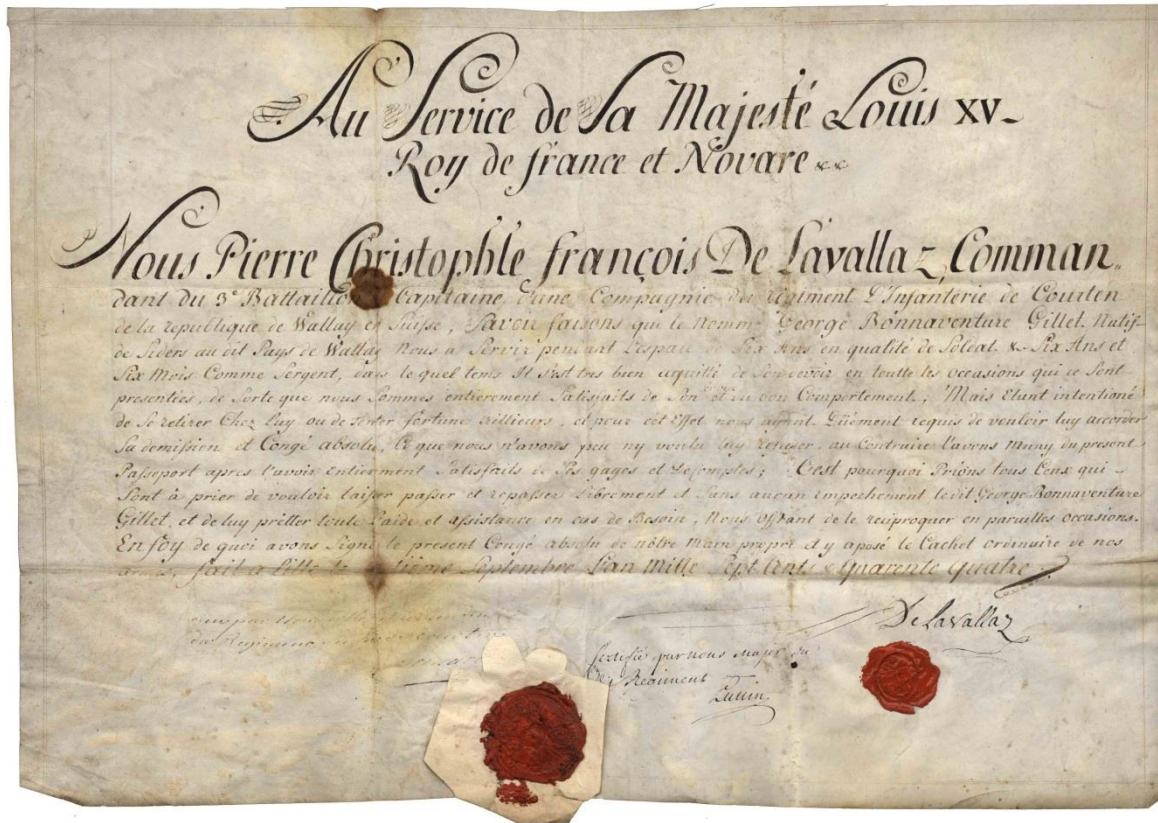 Au Service de Sa Majesté Louis XV
Roy de france et Novare
Nous Pierre Christophle françois De Lavallaz Comman
dant du 3e Battaillon Capitaine d'une Compagnie du régiment D'Infanterie de Courten
de la republique de Wallay en Suisse, Savoir faisons que le Nommé George Bonnaventure Gillet Natif
de Siders au dit Pays de Wallay Nous a Servir pendant l'espace de Six Ans en qualité de Soldat & Six Ans et
Six Mois Comme Sergent, dans le quel tems Il s'est tres bien acquitté de Son devoir en toutte les occasions qui se Sont
presentées, de Sorte que nous Sommes entierement Satisfaits de Son et du bon Comportement; Mais Etant intentioné
de Se retirer Chez luy ou de tenter fortune ailleurs, et pour cet Effet nous ayant Düement requis de vouloir luy accorder
Sa demission et Congé absolu, Ce que nous n'avons peu ny voulu luy refuser, au Contraire l'avons Muny du present
Passeport apres l'avoir Entierement Satisfaits de Ses gages et Decomptes; C'est pourquoi Prions tous Ceux qui
Sont à prier de vouloir laisser passer et repasser Librement et Sans aucun empechement ledit George Bonnaventure
Gillet, et de luy pretter toute l'aide et assistance en cas de Besoin, Nous offrant de le reciproquer en pareilles occasions.
En foy de quoi avons Signé le present Congé absolu de nôtre Main propre & y aposé le Cachet ordinaire de nos
armes, fait a Lille le Septembre L'an Mille Sept Cents & Quarente Quatre
De Lavallaz
du Regiment
Certifié par nous Major du
Regiment